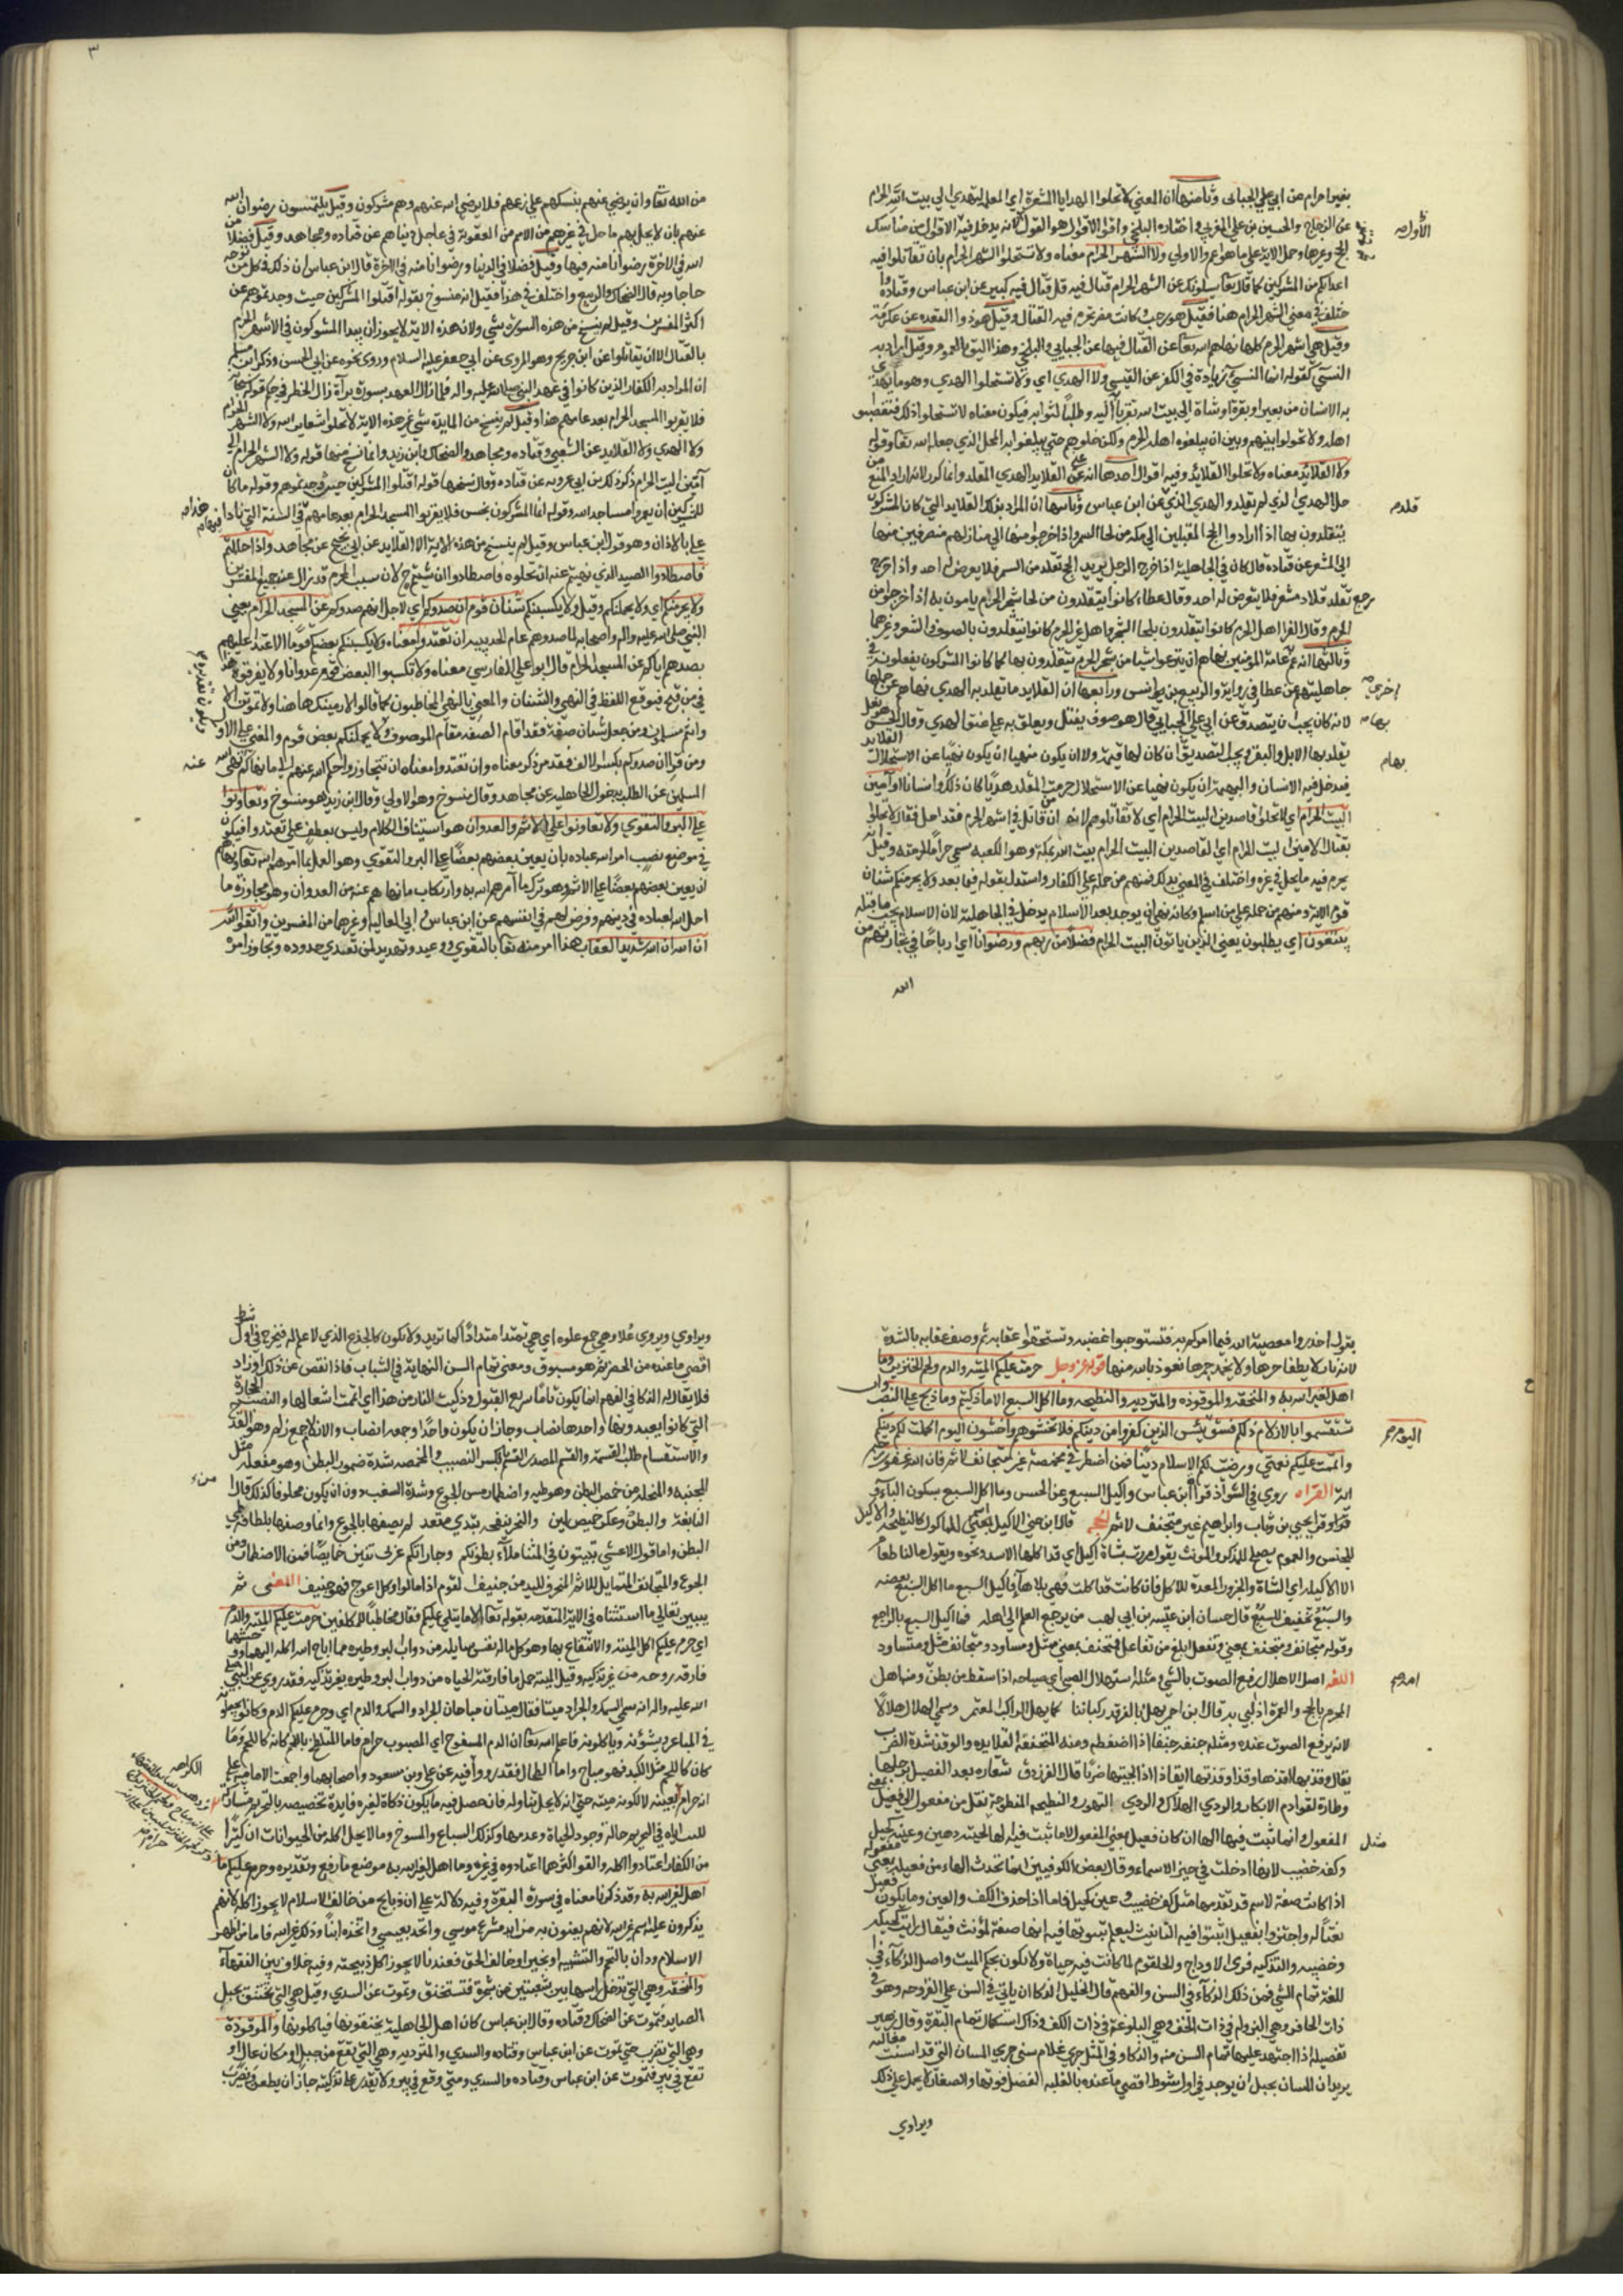 بغير احرام عن ابي علي الجبائي وثامنها ان المعني لا تحلوا الهدايا المشعرة اي المعلمة لتهدي الي بيت الله الحرام
عن الزجاج والحسين بن علي المغربي واختاره البلخي واقوي الاقوال هو القول الاول لانه يدخل فيه الاقوال من مناسك
الحج وغيرها وحمل الاية علي ما هو اعم والاولي ولا الشهر الحرام معناه ولا تستحلوا الشهر الحرام بان تقاتلوا فيه
اعداءكم من المشركين كما قال تعالي يسئلونك عن الشهر الحرام قتال فيه قل قتال فيه كبير عن ابن عباس وقتاده وا
ختلف في معني الشهر الحرام هنا فقيل هو رجب وكانت مضر تحرم فيه القتال وقيل هو ذوا القعده عن عكرمة
وقيل هي اشهر الحرم كلها نهاهم الله تعا عن القتال فيها عن الجبايي والبلخي وهذا اليق بالعموم وقيل اراد به
النسئ كقوله انما النسئ زيادة في الكفر عن القيسي ولا الهدي اي ولا تستحلوا الهدي وهو ما يهدي
به الانسان من بعير او بقرة او شاة الي بيت الله تقربا اليه وطلبا لثوابه فيكون معناه لا تستحلوا ذلك فتغصبوا
اهله ولا تحولوا بينهم وبين ان يبلغوه اهله الحرم ولكن خلوهم حتي يبلغوا به المحل الذي جعله الله تعا وقوله
ولا القلايد معناه ولا تحلوا القلايد وفيه اقوال احدها انه عني القلايد الهدي المقلد وانما كرر لانه اراد المنع من
حل الهدي الذي لم يقلد والهدي الذي عن ابن عباس وثانيها ان المراد بذلك القلايد التي كان المشركون
يتقلدون بها اذا ارادوا الحج المقبلين الي مكه من لحا السمر واذا خرجوا منها الي منازلهم منصرفين منها
الي المشعر عن قتاده قال كان في الجاهلية اذا خرج الرجل يريد الحج تقلد من السمر فلا يعرض له احد واذا خرج
رجع تقلد قلادة شعر فلا يتعرض له احد وقال عطاء كانوا يتقلدون من لحا شجر الحرام يامون به اذا خرجوا من
الحرم وقال الفرا اهل الحرم كانوا يتقلدون بلحا الشجر واهل غير الحرم كانوا يتقلدون بالصوف والشعر وغيرهما
وثالثها انه عم عامة المؤمنين نهاهم ان ينزعوا شيئا من شجر الحرم يتقلدون بها كما كانوا المشركون يفعلونه في
جاهليتهم عن عطا في رواية والربيع بن انس ورابعها ان القلايد ما تقلد به الهدي نهاهم عن حلها
لانه كان يجب ان يتصدق عن ابي علي الجبايي قال هو صوف يفتل ويعلق به علي عنق الهدي وقال الحسن هو نعل
يقلد بها الابل والبقر ويجب التصديق ان كان لها قيمة ولا ان يكون منهيا ان يكون نهيا عن الاستحلالت القلايد
فيدخل فيه الانسان والبهيمة ان يكون نهيا عن الاستحلال حرمت المقلد هديا كان ذلك او انسانا ولا آمين
البيت الحرام اي لا تحلوا قاصدين البيت الحرام اي لا تقاتلوهم لانه من قاتل في اشهر الحرم فقد احل فقال لا تحلوا
بقتال الامين لبيت الحرام اي القاصدين البيت الحرام بيت الله بمكة وهو الكعبه سمي حراما لحرمته وقيل لانه
يحرم فيه ما يحل في غيره واختلف في المعني بذلك فمنهم من حمله علي الكفار واستدل بقوله فيما بعد ولا يجرمنكم شنان
قوم الاية ومنهم من حمله علي من اسلم وكانه نهي ان يوخذ بعد الاسلام بدخل في الجاهلية لان الاسلام يجب ما قبله
يبتغون اي يطلبون يعني الذين ياتون البيت الحرام فضلا من ربهم ورضوانا اي ارباحا في تجارتهم من
الله
الأول صح
قلد صح
اخري صح
بها صح
بها م
٣
من الله تعا وان يرضي عنهم بنسكهم علي زعمهم فلا يرضي الله عنهم وهم مشركون وقيل يلتمسون رضوان الله
عنهم بان لا يحل بهم ما حل في غيرهم من الامم من العقوبة في عاجل دنياهم عن قتاده ومجاهد وقيل فضلا من
الله في الاخرة رضوانا منه فيها وقيل فضلا في الدنيا ورضوانا منه في الاخرة قال ابن عباس ان ذلك في كل من توجه
حاجا وبه قال الضحاك والربيع واختلف في هذا فقيل انه منسوخ بقوله اقتلوا المشركين حيث وجدتموهم عن
اكثر المفسرين وقيل لم ينسخ من هذه السورة شي ولا من هذه الاية لا يجوز ان يبدا المشركون في الاشهر الحرم
بالقتال الا ان يقاتلوا عن ابن جريج وهو المروي عن ابي جعفر عليه السلام وروي نحوه عن ابي الحسن وذكر ابن مسلم
ان المراد به الكفار الذين كانوا في عهد النبي صلي الله عليه واله فلما زال العهد بسورة براة زال الخطر في حكم قوله تعالي
فلا يقربوا المسجد الحرام بعد عامهم هذا وقيل لم ينسخ من المايدة شي غير هذه الاية لا تحلوا شعاير الله ولا الشهر الحرام
ولا الهدي ولا القلايد عن الشعبي وقتاده ومجاهد والضحاك وابن زيد وانما نسخ منها قوله ولا الشهر الحرام الي
آمين البيت الحرام ذكر ذلك ابن ابي عروبه عن قتاده وقال نسخها قوله اقتلوا المشركين حيث وجدتموهم وقوله ما كان
للمشركين ان يعمروا مساجد الله وقوله انما المشركون نجس فلا يقربوا المسجد الحرام بعد عامهم في السنة التي نادي
علي بالاذان وهو قول ابن عباس وقيل لم ينسخ من هذه الاية الا القلايد عن ابي نجيح عن مجاهد واذا حللتم
فاصطادوا الصيد الذي نهيتم عنه ان تحلوه فاصطادوا ان شئتم ج لان سبب الحرم قد زال عند جميع المفسرين
ولا يجرمنكم اي ولا يحملنكم وقيل ولا يكسبنكم شنان قوم ان صدوكم اي لاجل انهم صدوكم عن المسجد الحرام يعني
النبي صلي الله عليه واله واصحابه لما صدوهم عام الحديبيه ان تعتدوا معناه ولا يكسبنكم بعضكم قوما الاعتداء عليهم
بصدهم اياكم عن المسجد الحرام قال ابوا علي الفارسي معناه ولا تكسبوا البعض قوم عدوانا ولا يفرقوه هذا
في من نزع فيوقع اللفظ في النهي والشنان والمعني بالنهي المخاطبون كما قالوا لا ارينك هاهنا ولا تموتن الا
وانتم مسلمون ومن جعل شنان صفة فقد اقام الصفه مقام الموصوف ولا يحملنكم بعض قوم والمعني علي الاول
ومن قرا ان صدوكم بكسر الالف فقد مر ذكر معناه وان تعتدوا معناه ان تتجاوزوا حكم الله عنهم الي ما نهاكم نهي الله
المسلمين عن الطلب بذحول الجاهليه عن مجاهد وقال منسوخ وهو الاولي وقال ابن زيد هو منسوخ وتعاونوا
علي البر والتقوي ولا تعاونوا علي الاثم والعدوان هو استيناف الكلام وليس بعطف علي تعتدوا فيكون
في موضع نصب امر الله عباده بان يعين بعضهم بعضا علي البر والتقوي وهو العمل بما امرهم الله تعا ونهاهم
ان يعين بعضهم بعضا علي الاثم وهو ترك ما آمرهم الله به وارتكاب ما نهاهم عنه من العدوان وهو مجاوزة ما
احل الله لعباده في دينهم وفرض لهم في انفسهم عن ابن عباس و ابي العاليه وغيرهما من المفسرين واتقوا الله
ان الله ان الله شديد العقاب هذا امر منه تعا بالتقوي ووعيد وتهديد لمن تعدي حدوده وتجاوز امره
عنه
يقول احذروا معصية الله فيما امركم به فتستوجبوا غضبه وتستحقوا عقابه ثم وصف عقابه بالشدة
لانه نار لا يطفا حرها ولا يخمد جمرها نعوذ بالله منها قوله عز وجل حرمت عليكم الميتة والدم ولحم الخنزير وما
اهل لغير الله به والمنخنقه والموقوذه والمترديه والنطيحه وما اكل السبع الا ما ذكيتم وما ذبح علي النصب وان
تستقسموا بالازلام ذلكم فسق يئس الذين كفروا من دينكم فلا تخشوهم واخشون اليوم اكملت لكم دينكم
واتممت عليكم نعمتي ورضيت لكم الاسلام دينا فمن اضطر في مخمصة غير متجانف لاثم فان الله غفور رحيم
اية القراه روي في الشواذ قراة ابن عباس واكيل السبع وعن الحسن وما اكل السبع بسكون الباء و
قراة وقرا يحيي بن وثاب وابراهيم غير متجنف لاثم الحجه قال ابن جني الاكيل بمعني الماكول كالنطيحه والاكيل
للجنس والعموم يصلح للمذكر والمونث يقول مررت بشاة اكيل اي قد اكلها الاسد ونحوه ويقول ما لنا طعام
الا الاكيله اي الشاة والجزور المعدة للاكل فان كانت قد اكلت فهي بلا هاء فاكيل السبع ما اكل السبع بعضه
والسبع تخفيف للسبع قال حسان ابن عتبه بن ابي لهب من يرجع العام الي اهله فما اكيل السبع بالراجع
وقوله متجانف ومتجنف بمعني وتفعل ابلغ من تفاعل فمتجنف بمعني متميل ومتاود ومتجانف متمايل ومتساود
اللغه اصل الاهلال رفيع الصوت بالشي ومثله استهلال الصبي اي صياحه اذا سقط من بطن ومنه اهل
المحرم بالحج والعمرة اذا لبي به قال ابن احمر يهل بالفرقد ركبانها كما يهل الراكب المعتمر وسمي الهلال هلالا
لانه يرفع الصوت عنده ومثله خنقه خنقا اذا ضغطه ومنه المنخنقه لقلايده والوقذ شدة الضرب
يقال وقذتها اقذها وقذا وقذتها ايقاذا اذا اثخنتها ضربا قال الفرزدق شغاره تقذ الفصيل برجلها
وطارة لقوادم الابكار والردي الهلاك والردي التهور والنطيحه المنطوحة نقل من مفعول الي فعيل بمعني
المفعول وانما ثبت فيها الها ان كان فعيل بمعني المفعول لا ما ثبت فيه لها لحية دهين وعين كحيل
وكف خضيب لانها ادخلت في حيز الاسماء وقال بعض الكوفيين انما تحذف الهاء من فعيله بمعني مفعوله
اذا كانت صفة لاسم قد تقدمها مثل كف خضيب وعين كحيل فاما اذا حذف الكف والعين وما يكون فعيل
نعتا له واجتزوا بفعيل اثبتوا فيه التانيث ليعلم ثبوتها فيه انها صفة لمؤنث فيقال رايت كحيله
وخضيبه والتذكيه فري الاوداج والحلقوم لما كانت فيه حياة ولا يكون بحكم الميت واصل الزكاء في
للغة تمام الشي فمن ذلك الذكاء في السن والفهم قال الخليل الذكا ان ياتي في السن علي القروحه وهو في
ذات الحافر وهي البزولة في ذات الخف وهي الصلوغة في ذات الكف وذاك استكمال تمام البقرة وقال زهير
تفضيله اذا اجتهد عليها تمام السن منه والذكاء وفي المثل جري غلام سني جري المسان التي قد اسنت مغاليه
يريد ان المسان يحمل ان يوجد في اول شوط اقصي ما عنده بالغلبه الفضل قوتها والصغار لا يحمل علي ذلك
ويراوي
ع
اليوم صح
ام صح
مثل
ويراوي ويروي غلاء وهي جمع غلوه اي هي تمتد امتدادا كما تريد ولا يكون كالجذع الذي لا علم له فيخرج في اول شوط
اقصي ما عنده من الحضر ثم هو مسبوق ومعني تمام السن النهايه في الشباب فاذا نقص عن ذلك او زاد
فلا يقال له الذكا في الفهم انما يكون تاما سريع القبول وذكيت النار من هذا اي اتممت اشعالها والنصب الحجارة
التي كانوا يعبدونها واحدها نصاب وجاز ان يكون واحدا وجمعه انصاب والازلام جمع زلم وهو القدح
والاستقسام طلب القسمة والقسم المصدر القسم بكسر النصيب والمخمصه شدة ضمور البطن وهو مفعله مثل
المجنبه والمنحله من خمص البطن وهو طيه واضطماره من الجوع وشدة السغب دون ان يكون مخلوقا كذلك قال
النابغة والبطن ذو عكن خميص لين والنحر ينفجه بثدي مقعد لم يصفها بالجوع وانما وصفها بلطافة طي
البطن واما قول الاعشي تبيتون في المشتا ملاء بطونكم وجاراتكم غرثي تبتن خمايصا فمن الاضطمار من
الجوع والمتجانف المتمايل للاثم المنحرف اليه من جنف القوم اذا مالوا وكل اعوج فهو جنيف المعني ثم
يبين تعالي ما استثناه في الاية المتقدمه بقوله تعا الا ما يتلي عليكم فقال مخاطبا للمكلفين حرمت عليكم الميته والدم
اي حرم عليكم اكل الميته والانتفاع بها وهو كل ما له نفس سايله من دواب البر وطيره مما اباح الله اكله اليهما وحشيها
فارقه روحه من غير تذكيه وقيل الميته كل ما فارقته الحياه من دواب البر وطيره بغير تذكيه فقد روي عن النبي صلي
الله عليه واله انه سمي السمك والجراد ميتا فقال ميتان مباحان الجراد والسمك والدم اي وحرم عليكم الدم وكانوا يجعلونه
في المباعر ويشوونه وياكلونه فاعلم الله تعا ان الدم المسفوح اي المصبوب حرام فاما المتلطخ باللحم فانه كاللحم وما
كان كاللحم مثل الكبد فهو مباح واما الطحال فقد رووا فيه عن علي وبن مسعود واصحابهما واجمعت الامامية علي
انه حرام بعينه لا لكونه ميتة حتي انه لا يحل تناوله فان حصل فيه ما يكون ذكاة لغيره فايدة تخصيصه بالتحريم مشاركة
للميتة اياه في التحريم حالة وجود الحياة وعدمها وكذلك السباع والمسوخ وما لا يحل اكله من الحيوانات ان كثيرا
من الكفار اعتادوا اكله والفوا اكثرهما اعتادوه في غيره وما اهل لغير الله به موضع ما رفع وتقديره وحرم عليكم ما
اهل لغير الله به وقد ذكرنا معناه في سورة البقرة وفيه دلالة علي ان ذبايح من خالف الاسلام لا يجوز اكله لانهم
يذكرون عليه اسم غير الله لانهم يعنون به من ابد شرع موسي واتحد بعيسي واتخذه ابنا وذلك غير الله فاما من اظهر
الاسلام ودان بالتجسم والتشبيه او بجبر او خالف الحق فعندنا لا يجوز اكل ذبيحته وفيه خلاف بين الفقهاء
والمنخنقه وهي التي تدخل راسها بين شعبتين من شجرة فتستخنق وتموت عن السدي وقيل هي التي تختنق بحبل
الصايد فتموت عن الضحاك وقتاده وقال ابن عباس كان اهل الجاهلية يخنقونها فياكلونها والموقوذة
وهي التي تضرب حتي تموت عن ابن عباس وقتاده والسدي والمترديه وهي التي تقع من جبل او مكان عال او
تقع في بئر فتموت عن ابن عباس وقتاده والسدي ومتي وقع في بير ولا يقدر علي تذكيته جاز ان يطعن ويضرب
من
الكراهيه